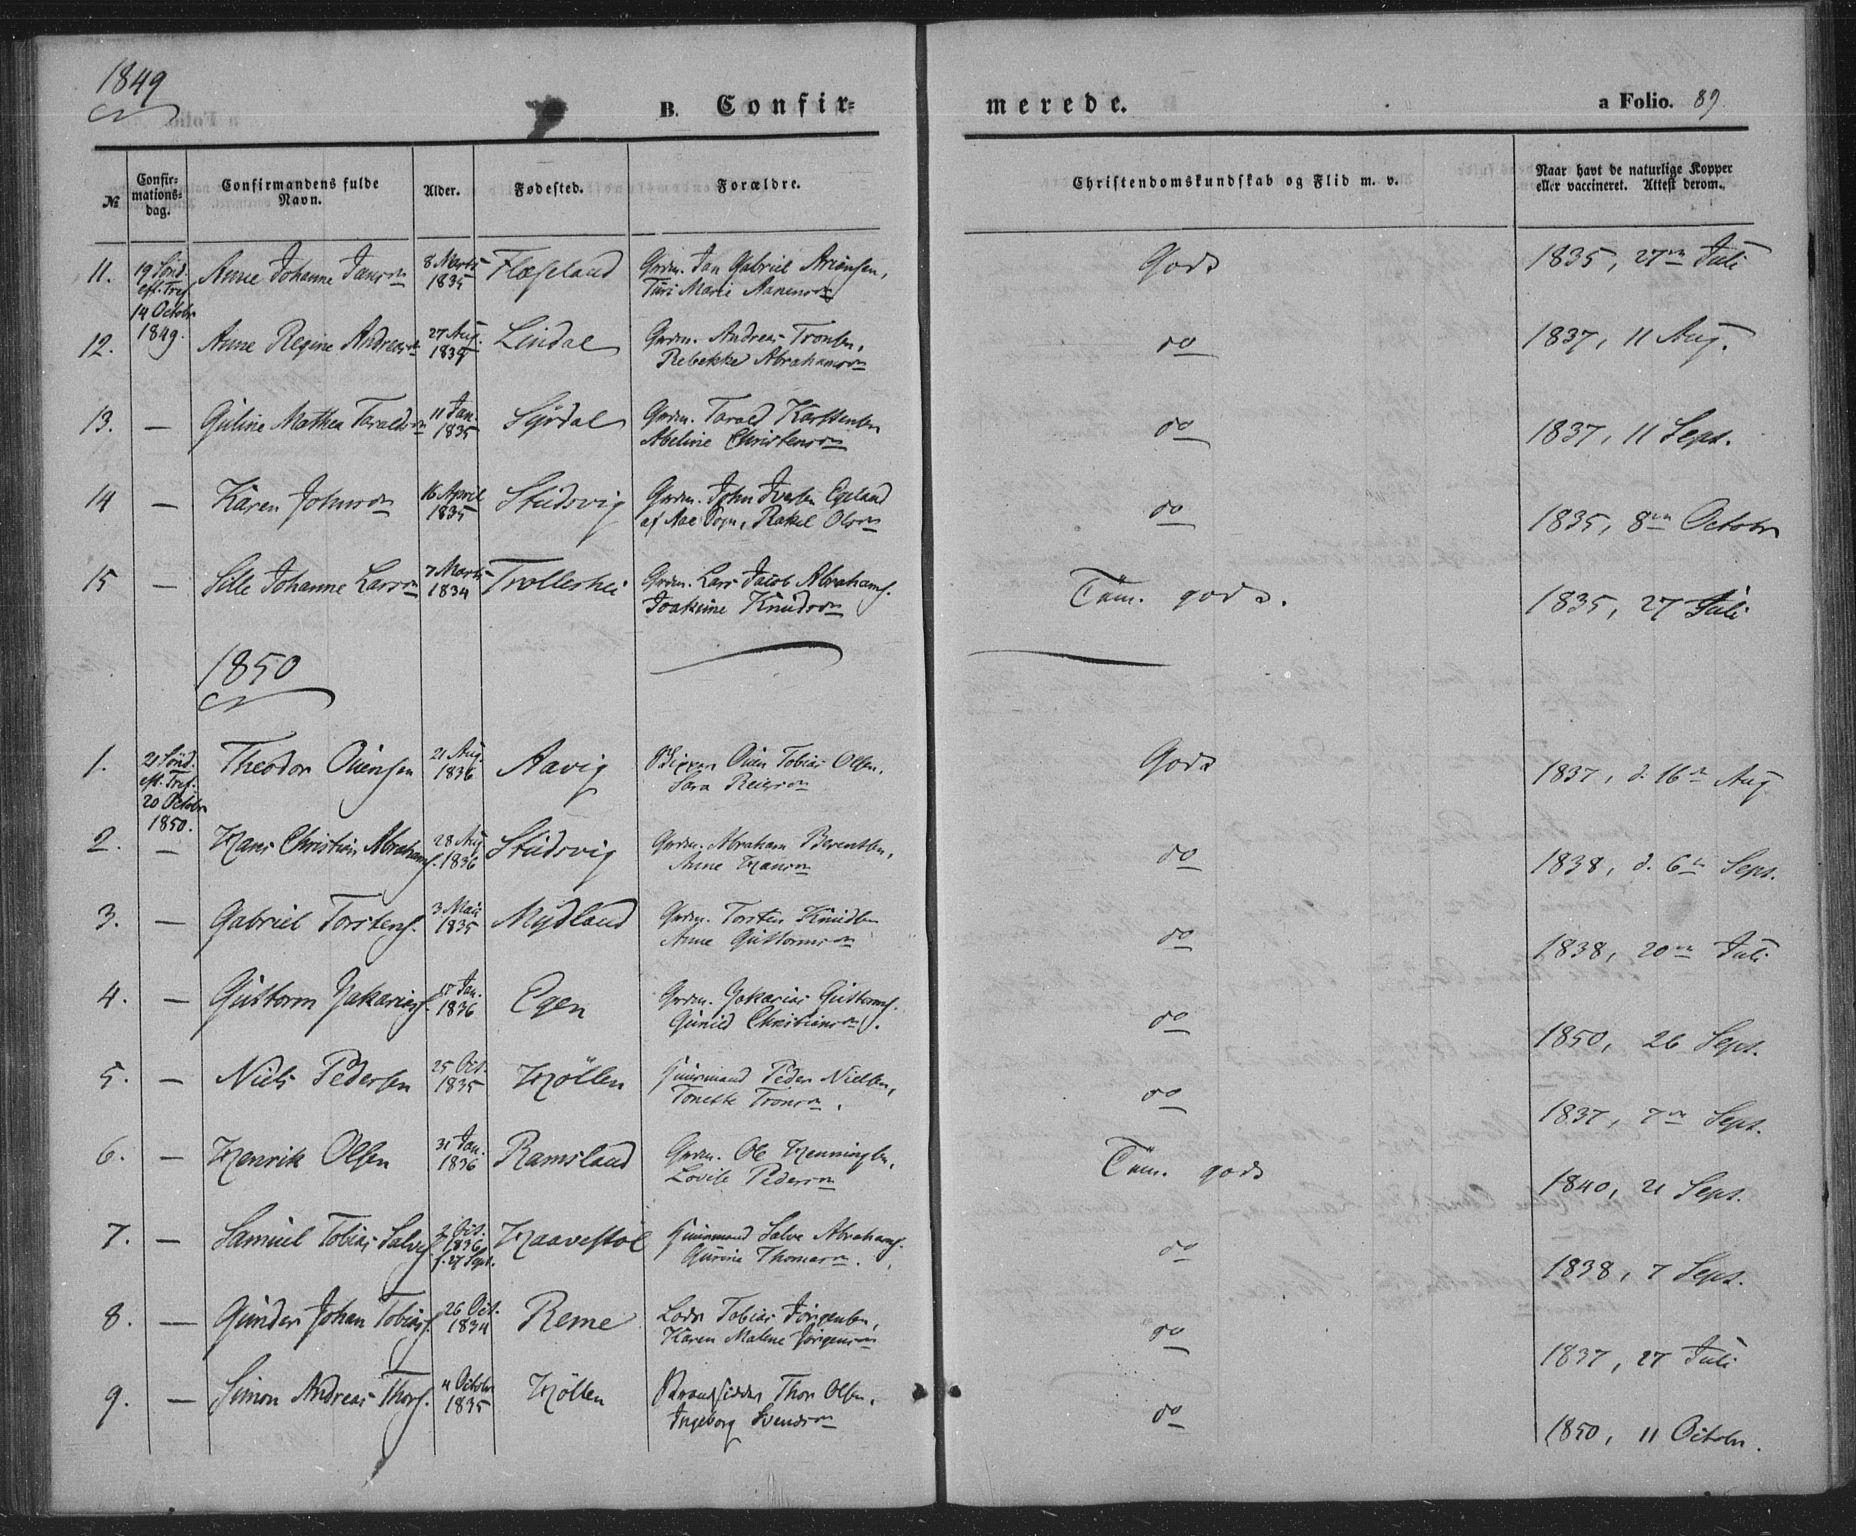 1849
B. Confir=
merede.
a Folio. 89.
№
Confir=
mations=
dag.
Confirmandens fulde
Navn.
Alder.
Fødested.
Forældre.
Christendomskundskab og Flid m. v.
Naar havt de naturlige Kopper
eller vaccineret. Attest derom.
11. 19 Sønd. eft. Tref. 14 Octobr 1849. Anne Johanne Jans 8 Marts 1835 Flæseland Grdm. Jan Gabriel Turi Marie Godt 1835, 27 Juli
12. Anne Regine Andreas 27 Aug. Lindal Grdm. Andreas Tronsen, Rebekke Abrahams do 1837, 11 Aug.
13. — Guline Mathea Taralds 11 Jan. 1835 Grdm. Tarald Karstensen Abeline Christens do 1837, 11 Sept.
14 — Karen Johns 16 April 1835 Studsvig Grdm. John Iversen Egeland af Aae Sogn, Rakel Ols do 1835, 8 Octobr
15 — Sille Johanne Lars 7 Marts 1834 Trolleshei Grdm. Lars Jacob Abrahams. Joakime Knuds Tem. godt. 1835, 27 Juli
1850
1. 21 Sønd. eft. Tref. 20 Octobr 1850. Theodor Ouensen 21 Aug. 1836 Aavig Ouen Tobias Olsen, Sara Reiers Godt 1837, d. 16 Aug
2. — Hans Christian Abrahams. 28 Aug 1836 Studsvig Grdm. Abraham Berentsen, Anne Hans do 1838, d. 6 Sept.
3. — Gabriel Torstens. 3 Mai 1835 Mydland Grdm. Torsten Knudsen Anne Guttorms do 1838, 20 Juli
4. — Guttorm Zakarias. Jan. 1836 Egen Grdm. Zakarias Guttorms. Gunild Christians do 1850, 26 Sept.
5. — Niels Pedersen 25 Oct. 1835 Höllen Huusmand Peder Nielsen, Tonette Trons. do 1837, 7 Sept.
6. — Henrik Olsen 31 Jan. 1836 Ramsland Grdm. Ole Henningsen, Lovise Peders Tem. godt 1840, 21 Sept.
7. — Samuel Tobias Salves. 2 Oct. 1836 f. 27 Sept. Haavestöl Huusmand Salve Abrahams. Gurine Thomas. do 1838, 7 Sept.
8. — Gunder Johan Tobias. 26 Oct. 1834 Reme Lods Tobias Jörgensen, Karen Malene Jörgens do 1837, 27 Juli
9. — Simon Andreas Thors. 4 Octobr 1835 Höllen Strandsidder Thor Olsen, Ingeborg Svends do 1850, 11 Octobr.